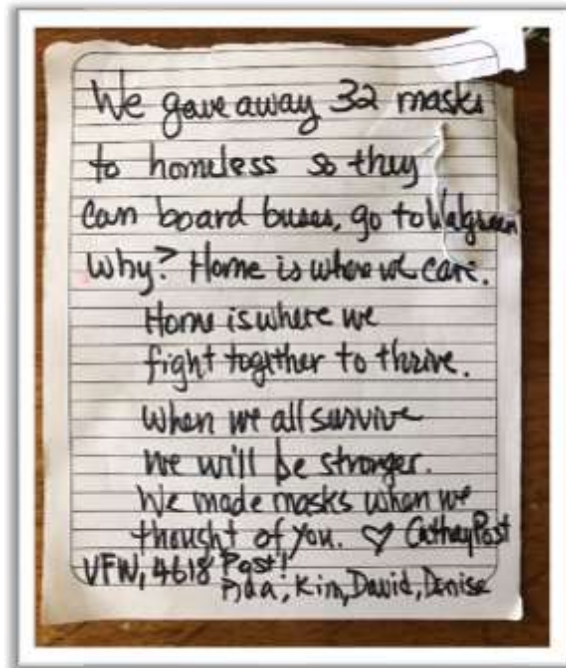 We gave away 32 masks
to homeless so they
can board buses, go to Walgreen
Why? Home is where we care.
Home is where we
fight together to thrive.
When we all survive
we will be stronger.
We made masks when we
thought of you. ♡ Cathay Post
VFW, 4618 Post!
Kim, David, Denise